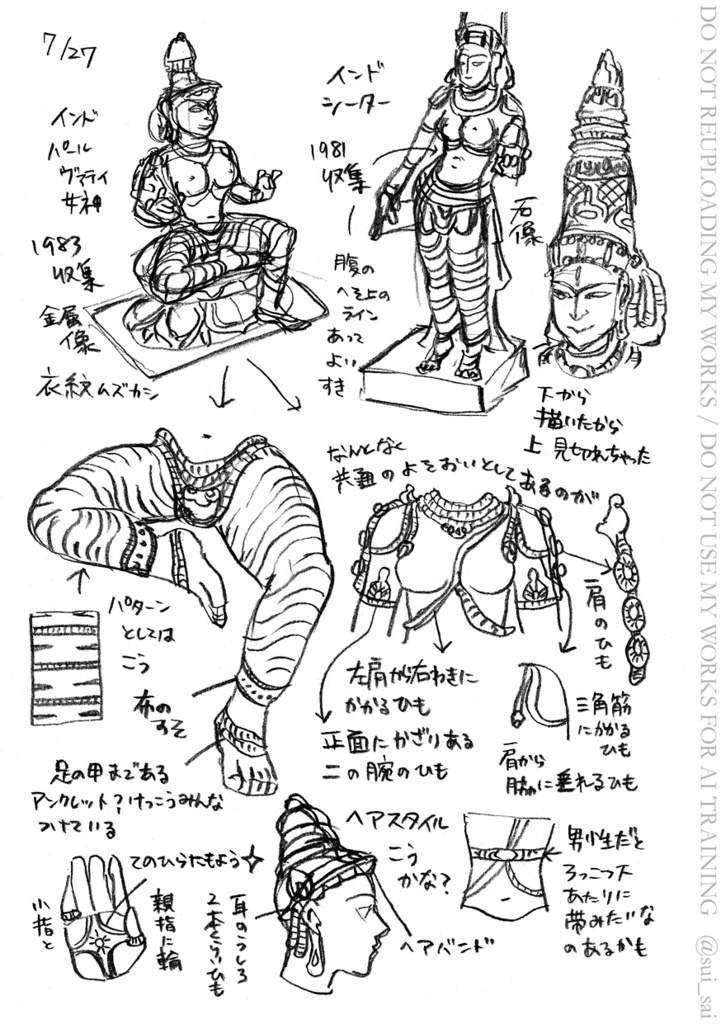 7/27
インド
パールヴァティ
女神
1983
収集
金属
像
衣紋ムズカシ
インド
シーター
1981
収集
腹の
へそ上の
ライン
あって
よい
すき
石
像
下から
描いたから
上見切れちゃった
なんとなく
共通のよそおいとしてあるのが
パターン
としては
こう
布の
すそ
足の甲まである
アンクレット?けっこうみんな
つけている
左肩から右わきに
かかるひも
正面にかざりある
二の腕のひも
肩のひも
三角筋
にかかる
ひも
肩から
脇に垂れるひも
てのひらたもよう
小指と
親指に輪
耳のうしろ
2本くらいひも
ヘアスタイル
こう
かな?
ヘアバンド
男性だと
ろっこつ下
あたりに
帯みたいな
のあるかも
DO NOT REUPLOADING MY WORKS / DO NOT USE MY WORKS FOR AI TRAINING @sui_sai